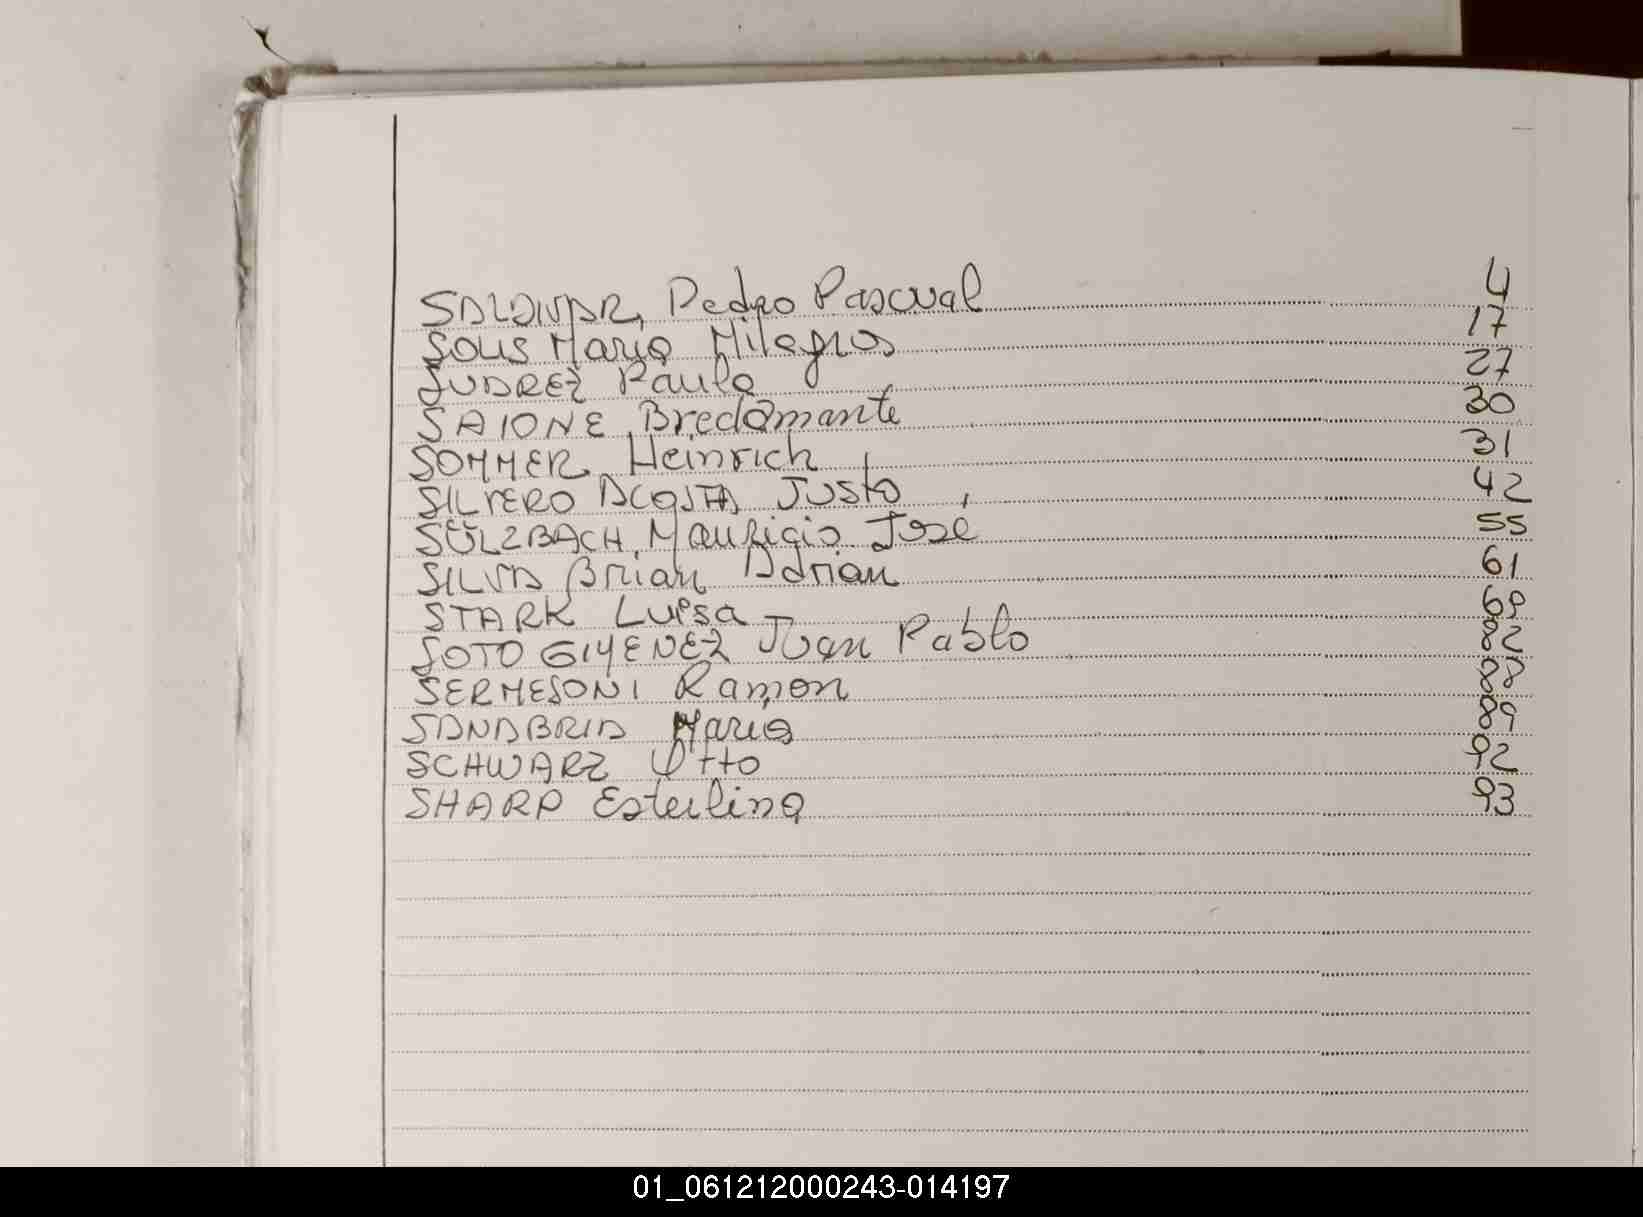 SALDIVAR, Pedro Pascual 4
SOLIS Maria Milagros 17
SUAREZ Paula 27
SAIONE, Bredamante 30
SOMMER, Heinrich 31
SILVERO ACOSTA, Justo 42
SÜLZBACH, Mauricio José 55
SILVA Brian Adrian 61
STARK Luisa 69
SOTO GIMENEZ Juan Pablo 82
SERMESONI Ramon 88
SANABRIA Maria 89
SCHWARZ Otto 92
SHARP Esterlina 93
01_061212000243-014197